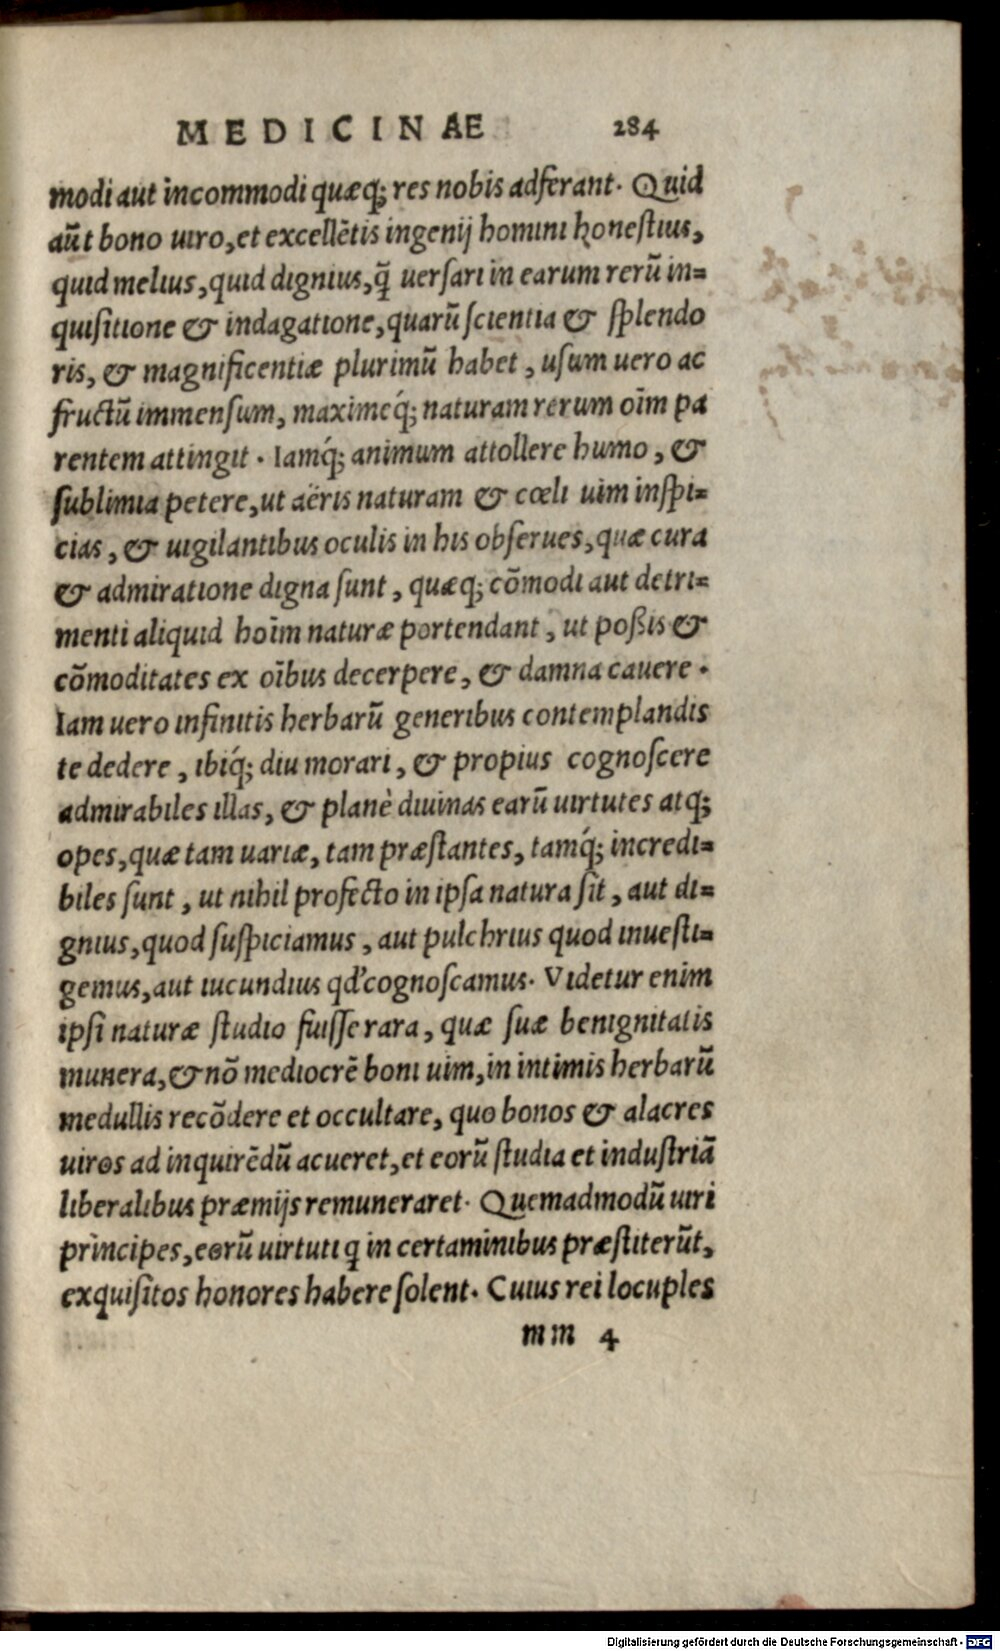 MEDICINAE 284
modi aut incommodi quæq; res nobis adferant. Quid
aūt bono uiro, et excellētis ingenij homini honeſtius,
quid melius, quid dignius, q̄ uerſari in earum rerū in=
quiſitione & indagatione, quarū ſcientia & ſplendo
ris, & magnificentiæ plurimū habet, uſum uero ac
fructū immenſum, maximeq́; naturam rerum oīm pa
rentem attingit. Iamq́; animum attollere humo, &
ſublimia petere, ut aëris naturam & cœli uim inſpi=
cias, & uigilantibus oculis in his obſerues, quæ cura
& admiratione digna ſunt, quæq; cōmodi aut detri=
menti aliquid hoīm naturæ portendant, ut poßis &
cōmoditates ex oībus decerpere, & damna cauere.
Iam uero infinitis herbarū generibus contemplandis
te dedere, ibiq́; diu morari, & propius cognoſcere
admirabiles illas, & planè diuinas earū uirtutes atq;
opes, quæ tam uariæ, tam præſtantes, tamq́; incredi=
biles ſunt, ut nihil profecto in ipſa natura ſit, aut di=
gnius, quod ſuſpiciamus, aut pulchrius quod inueſti=
gemus, aut iucundius qd' cognoſcamus. Videtur enim
ipſi naturæ ſtudio fuiſſe rara, quæ ſuæ benignitatis
munera, & nō mediocrē boni uim, in intimis herbarū
medullis recōdere et occultare, quo bonos & alacres
uiros ad inquirēdū acueret, et eorū ſtudia et induſtriā
liberalibus præmijs remuneraret. Quemadmodū uiri
principes, eorū uirtuti q in certaminibus præſtiterūt,
exquiſitos honores habere ſolent. Cuius rei locuples
mm 4
Digitalisierung gefördert durch die Deutsche Forschungsgemeinschaft - DFG